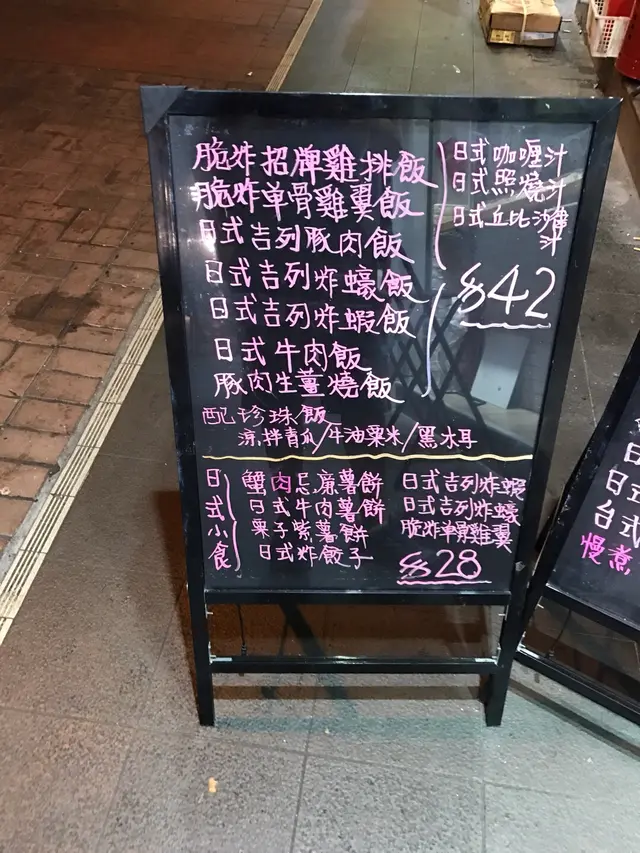 脆炸招牌雞排飯
脆炸单骨雞翼飯
日式吉列豚肉飯
日式吉列炸蠔飯
日式吉列炸蝦飯
日式牛肉飯
豚肉生薑燒飯
日式咖喱汁
日式照燒汁
日式丘比沙律汁
$42
配珍珠飯
涼拌青瓜/牛油粟米/黑木耳
日式小食
蟹肉忌廉薯餅
日式牛肉薯餅
栗子紫薯餅
日式炸餃子
日式吉列炸蝦
日式吉列炸蠔
脆炸单骨雞翼
$28
日
日式
台式
慢煮